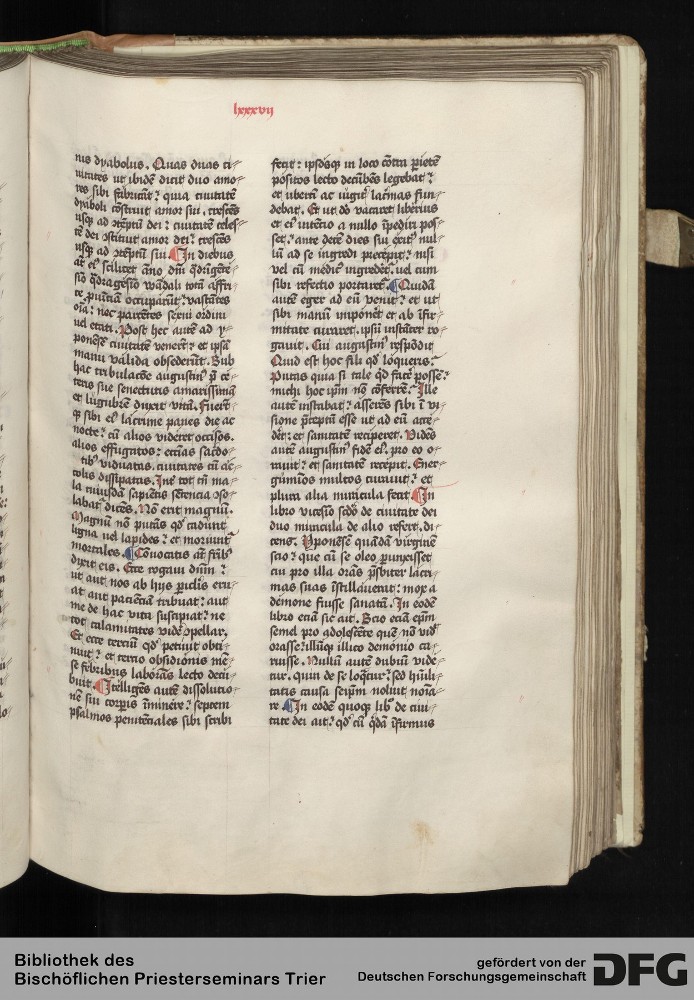 lxxxvij
nus dyabolus. Quas duas ci-
uitates ut ibidē dicit duo amo-
res sibi fabricāt: quia ciuitatē
dyaboli cōstruit amor sui, crescēs
usq; ad ꝯtēptū dei: ciuitatē celes-
tē dei ꝯstituit amor dei: crescēs
usq; ad ꝯtēptū sui. In diebus
at̄ eꝰ scilicet āno dn̄i q̄dringēte-
sīo q̄dragesīo wādali totā affri-
ce, puinciā occuparūt: vastātes
oīa: nec parcētes sexui ordini
uel etati. Post hec autē ad y-
ponēsē ciuitatē venerūt: et ipsā
manu valida obsederūt. Sub
hac tribulacōe augustinꝰ p̄ ce-
teris sue senectutis amarissimā
et lugubrē duxit vitā. Fuerūt
q̄ sibi eꝰ lacrime panes die ac
nocte: cū alios videret occisos.
alios effugatos: eccīas sacdo-
tibꝰ viduatas. ciuitates cū ac-
colis dissipatas. Int̄ tot at̄ ma-
la cuiusdā sapiētis sētēcia ꝯso-
labat̄ dicēs. Nō erit magnū.
Magnū nō putās qd̄ cadunt
ligna uel lapides: et moriunt̄
mortales. Cōuocatis at̄ frībꝰ
dixit eis. Ecce rogaui dn̄m:
ut aut nos ab hijs piculis eru-
at aut pacienciā tribuat: aut
me de hac vita suscipiat: ne
tot calamitates vidē ꝯpellar.
Et ecce terciū qd̄ petiuit obti-
nuit: et tercio obsidionis mē-
se febribus laborās lecto decu-
buit. Itelligēs autē dissolucio-
nē sui corpis īminere: septem
psalmos penitēciales sibi scribi
fecit: ipsosq; in loco cōtra pietē
positos lecto decūbēs legebat:
et ubertī ac iugit̄ lacrīas fun-
debat. Et ut dō vacaret liberius
et eꝰ intētio a nullo īpediri pos-
set: ante decē dies sui exitꝰ nul-
lū ad se ingredi precepit: nisi
vel cū medicꝰ ingrederet̄. uel cum
sibi refectio portaret̄. Quidā
autē eger ad eū venit: et ut
sibi manū imponēt et ab īfir-
mitate curaret. ipsū instāter ro-
gauit. Cui augustinꝰ respōdit
Quid est hoc fili qd̄ loqueris:
Putas quia si tale qd̄ facē possē:
michi hoc ipm̄ nō cōferrē: Ille
autē instabat: asserēs sibi ī vi-
sione p̄ceptū esse ut ad eū acce-
det: et sanitatē reciperet. Vidēs
autē augustinꝰ fidē eꝰ. pro eo o-
rauit: et sanitatē recepit. Ener-
gumīos multos curauit: et
plura alia miracula fecit. In
libro vicesīo sc̄do de ciuitate dei
duo miracula de alio refert. di-
cens. Yponēsē quādā virginē
scio: que cū se oleo pūnxisset
cui pro illa orās p̄sbiter lacri-
mas suas īstillauerat: mox a
demone fuisse sanatā. In eodē
libro eciā sic ait. Scio eciā ep̄m
semel pro adolescēte quē nō vidꝰ
orasse: illūq; illico demonio ca-
ruisse. Nullū autē dubiū vide-
tur. quin de se loq̄tur: sed hūili-
tatis causa seipm̄ noluit noīa-
re. In eodē quoq; libꝰ de ciui-
tate dei ait: qd̄ cū q̄dā īfirmus
Bibliothek des
Bischöflichen Priesterseminars Trier
gefördert von der
Deutschen Forschungsgemeinschaft
DFG